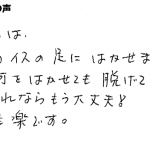 の声
は、
のイスの足にはかせま
可をはかせても脱げて
れならもう大丈夫♪
楽です。